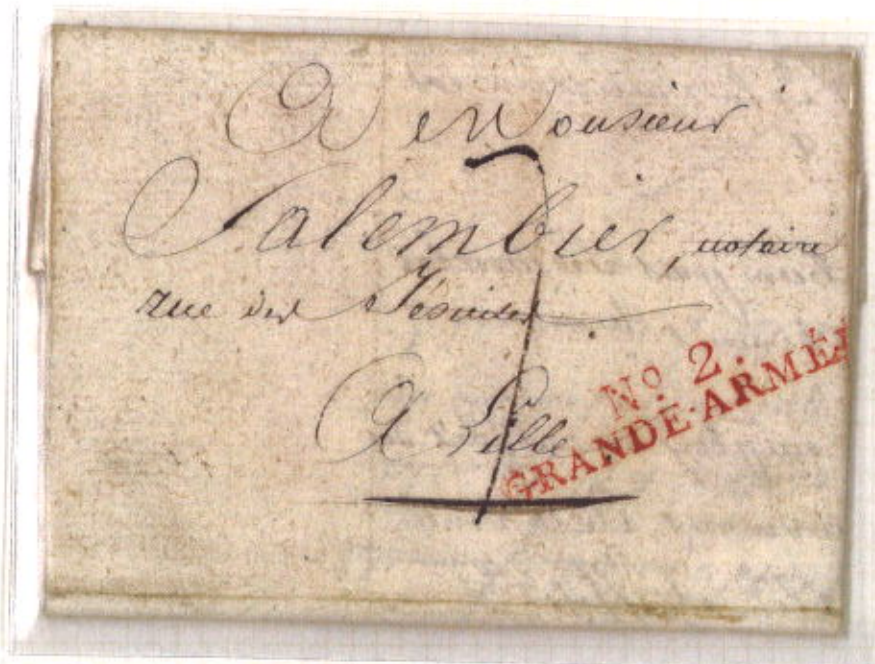 A Monsieur
Salembier, notaire
rue des Jésuites
A Lille
No 2.
GRANDE-ARMÉE